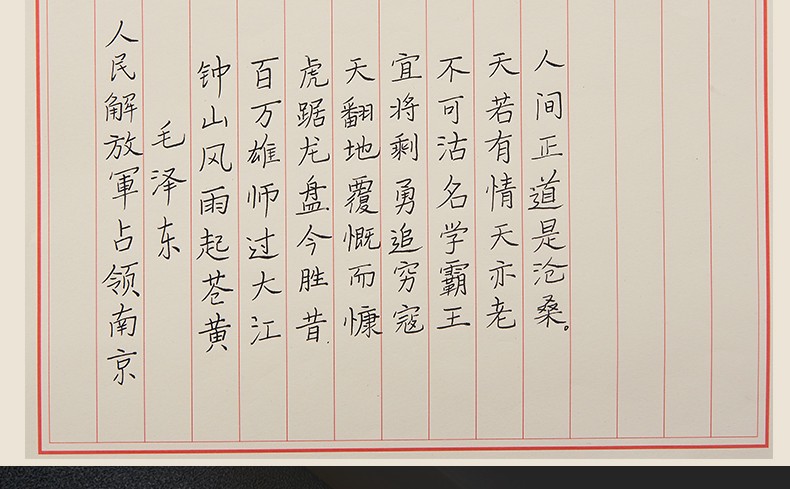 人民解放軍占领南京
毛泽东
钟山风雨起苍黄
百万雄师过大江
虎踞龙盘今胜昔
天翻地覆慨而慷
宜将剩勇追穷寇
不可沽名学霸王
天若有情天亦老
人间正道是沧桑。